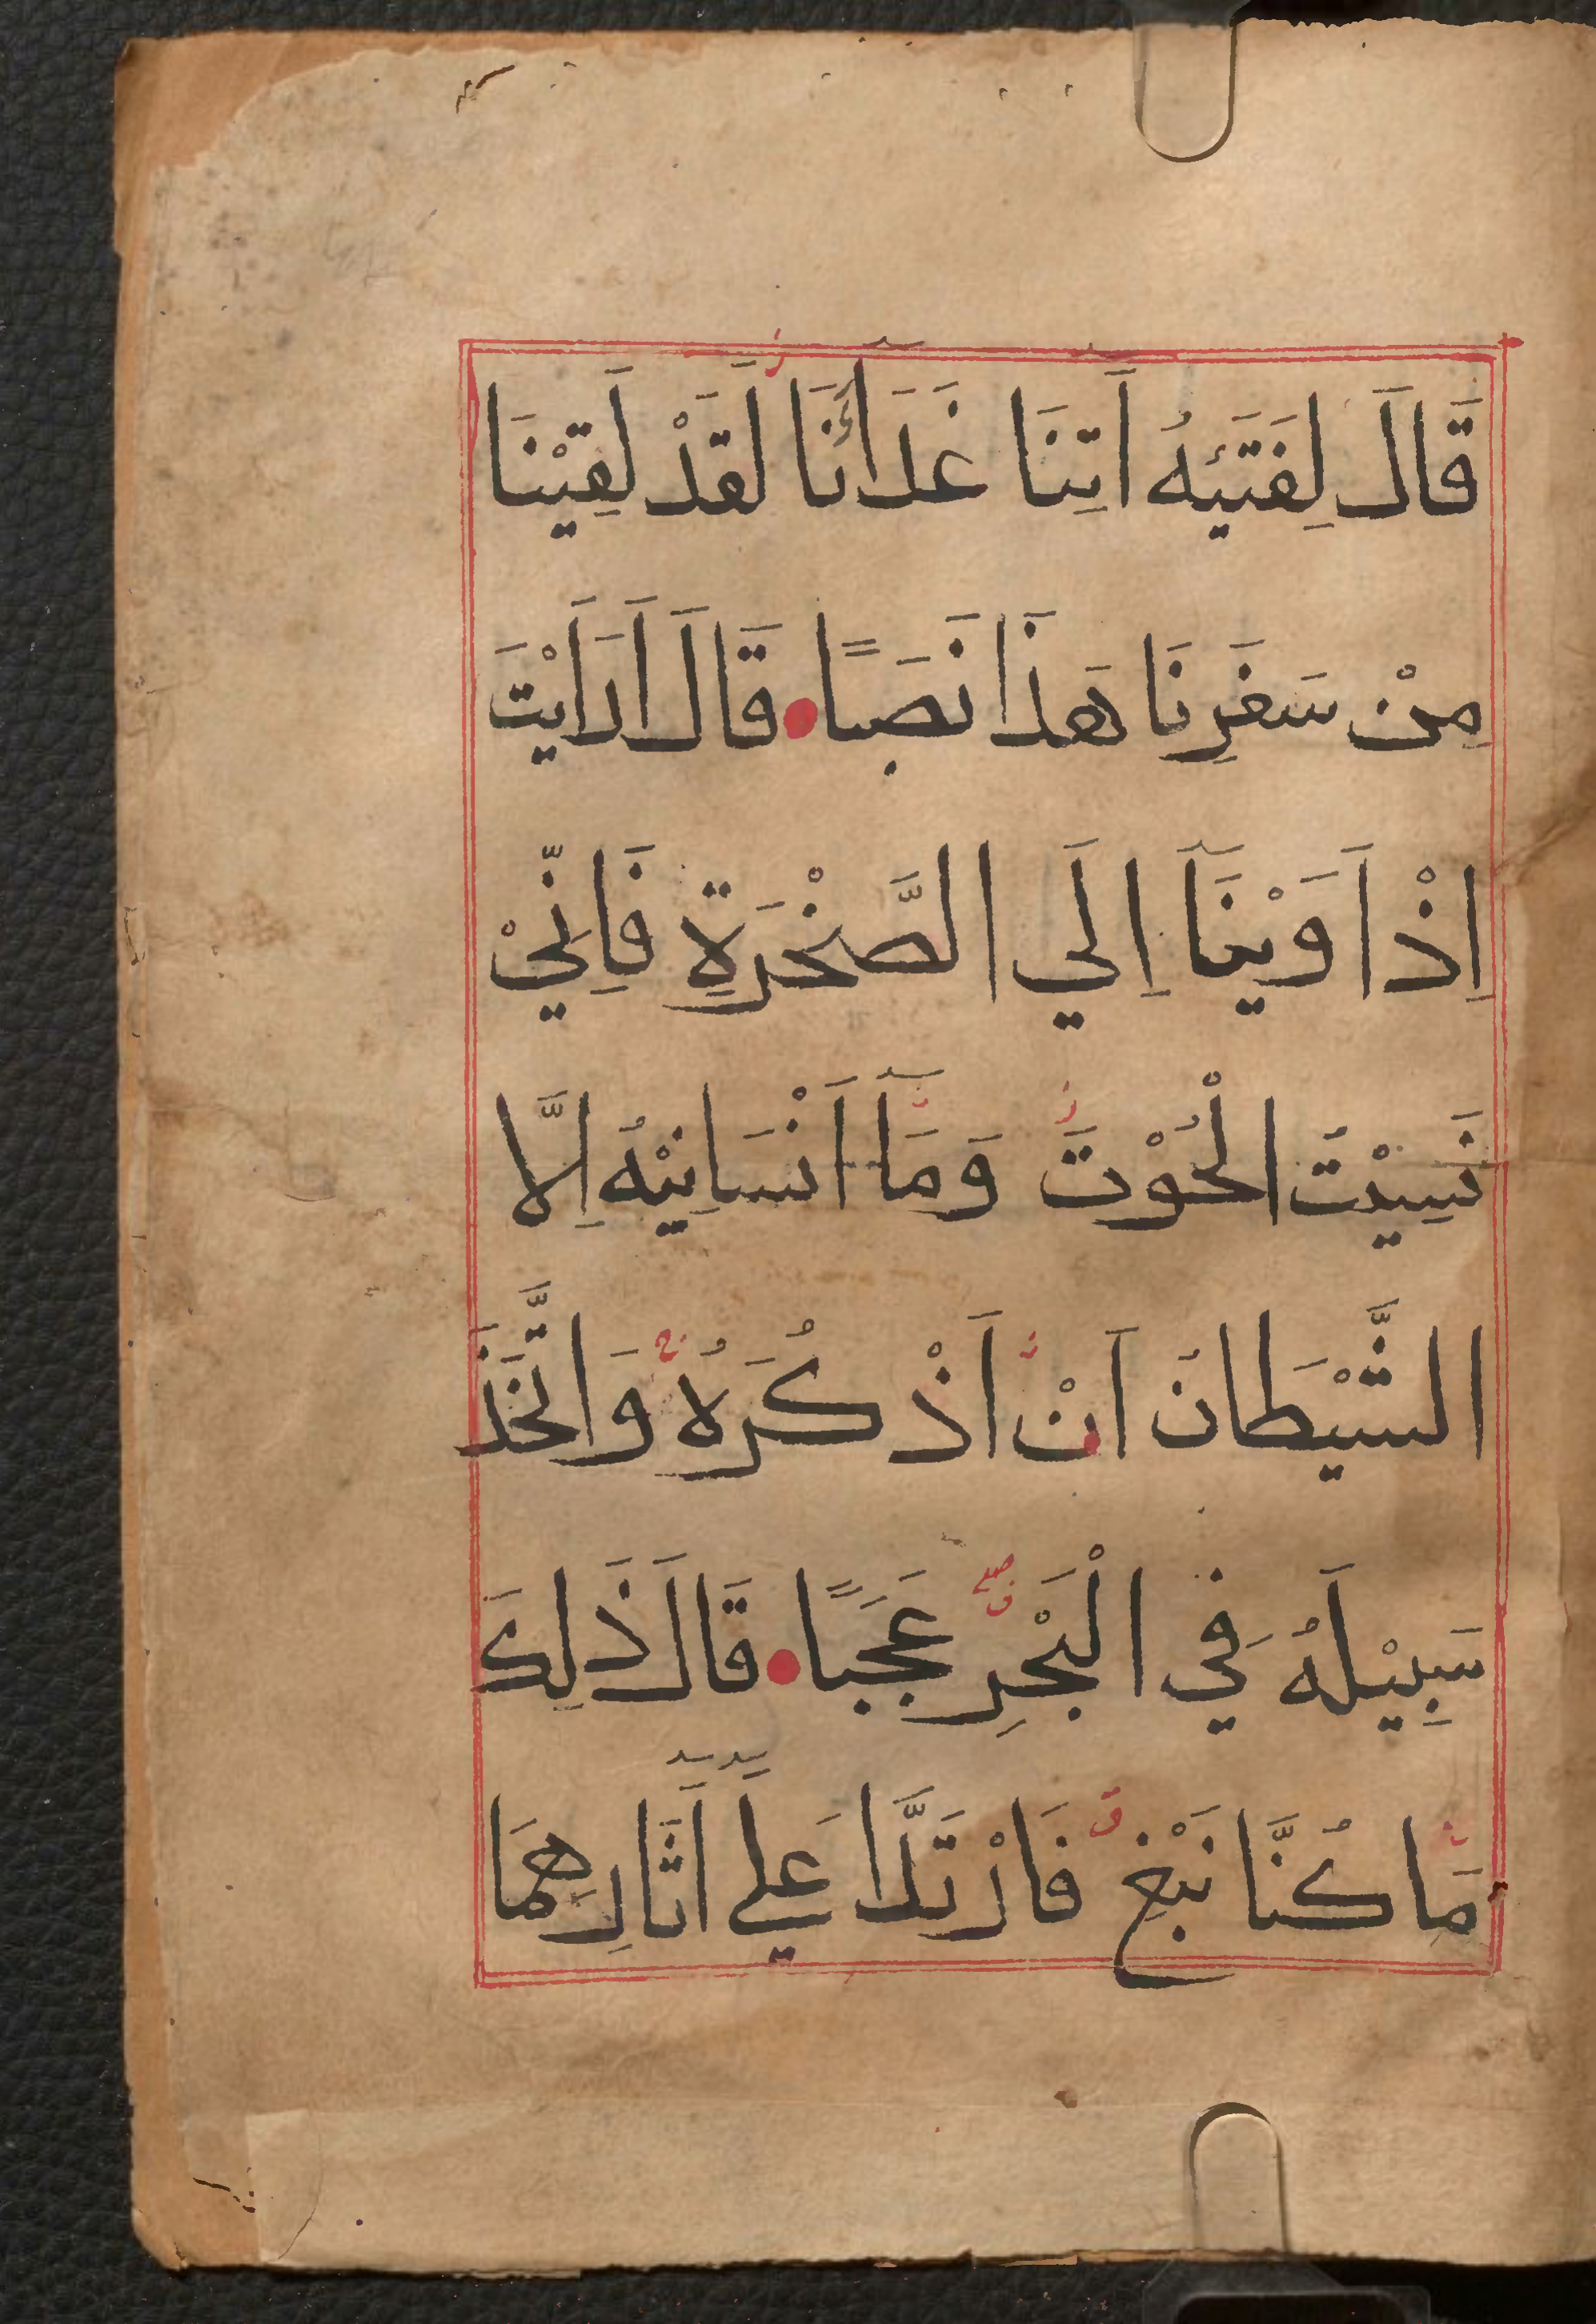 قَالَ لِفَتَيٰهُ اٰتِنَا غَدَآءَنَا لَقَدْ لَقِيْنَا
مِنْ سَفَرِنَا هَذَا نَصَبًا ۝ قَالَ اَرَاَيْتَ
اِذْ اَوَيْنَآ اِلَي الصَّخْرَةِ فَاِنِّيْ
نَسِيْتُ الْحُوْتَ وَمَآ اَنْسَانِيْهُ اِلَّا
الشَّيْطَانُ اَنْ اَذْكُرَهُ وَاتَّخَذَ
سَبِيْلَهُ فِي الْبَحْرِ عَجَبًا ۝ قَالَ ذَلِكَ
مَا كُنَّا نَبْغِ فَارْتَدَّا عَلَي اٰثَارِهِمَا